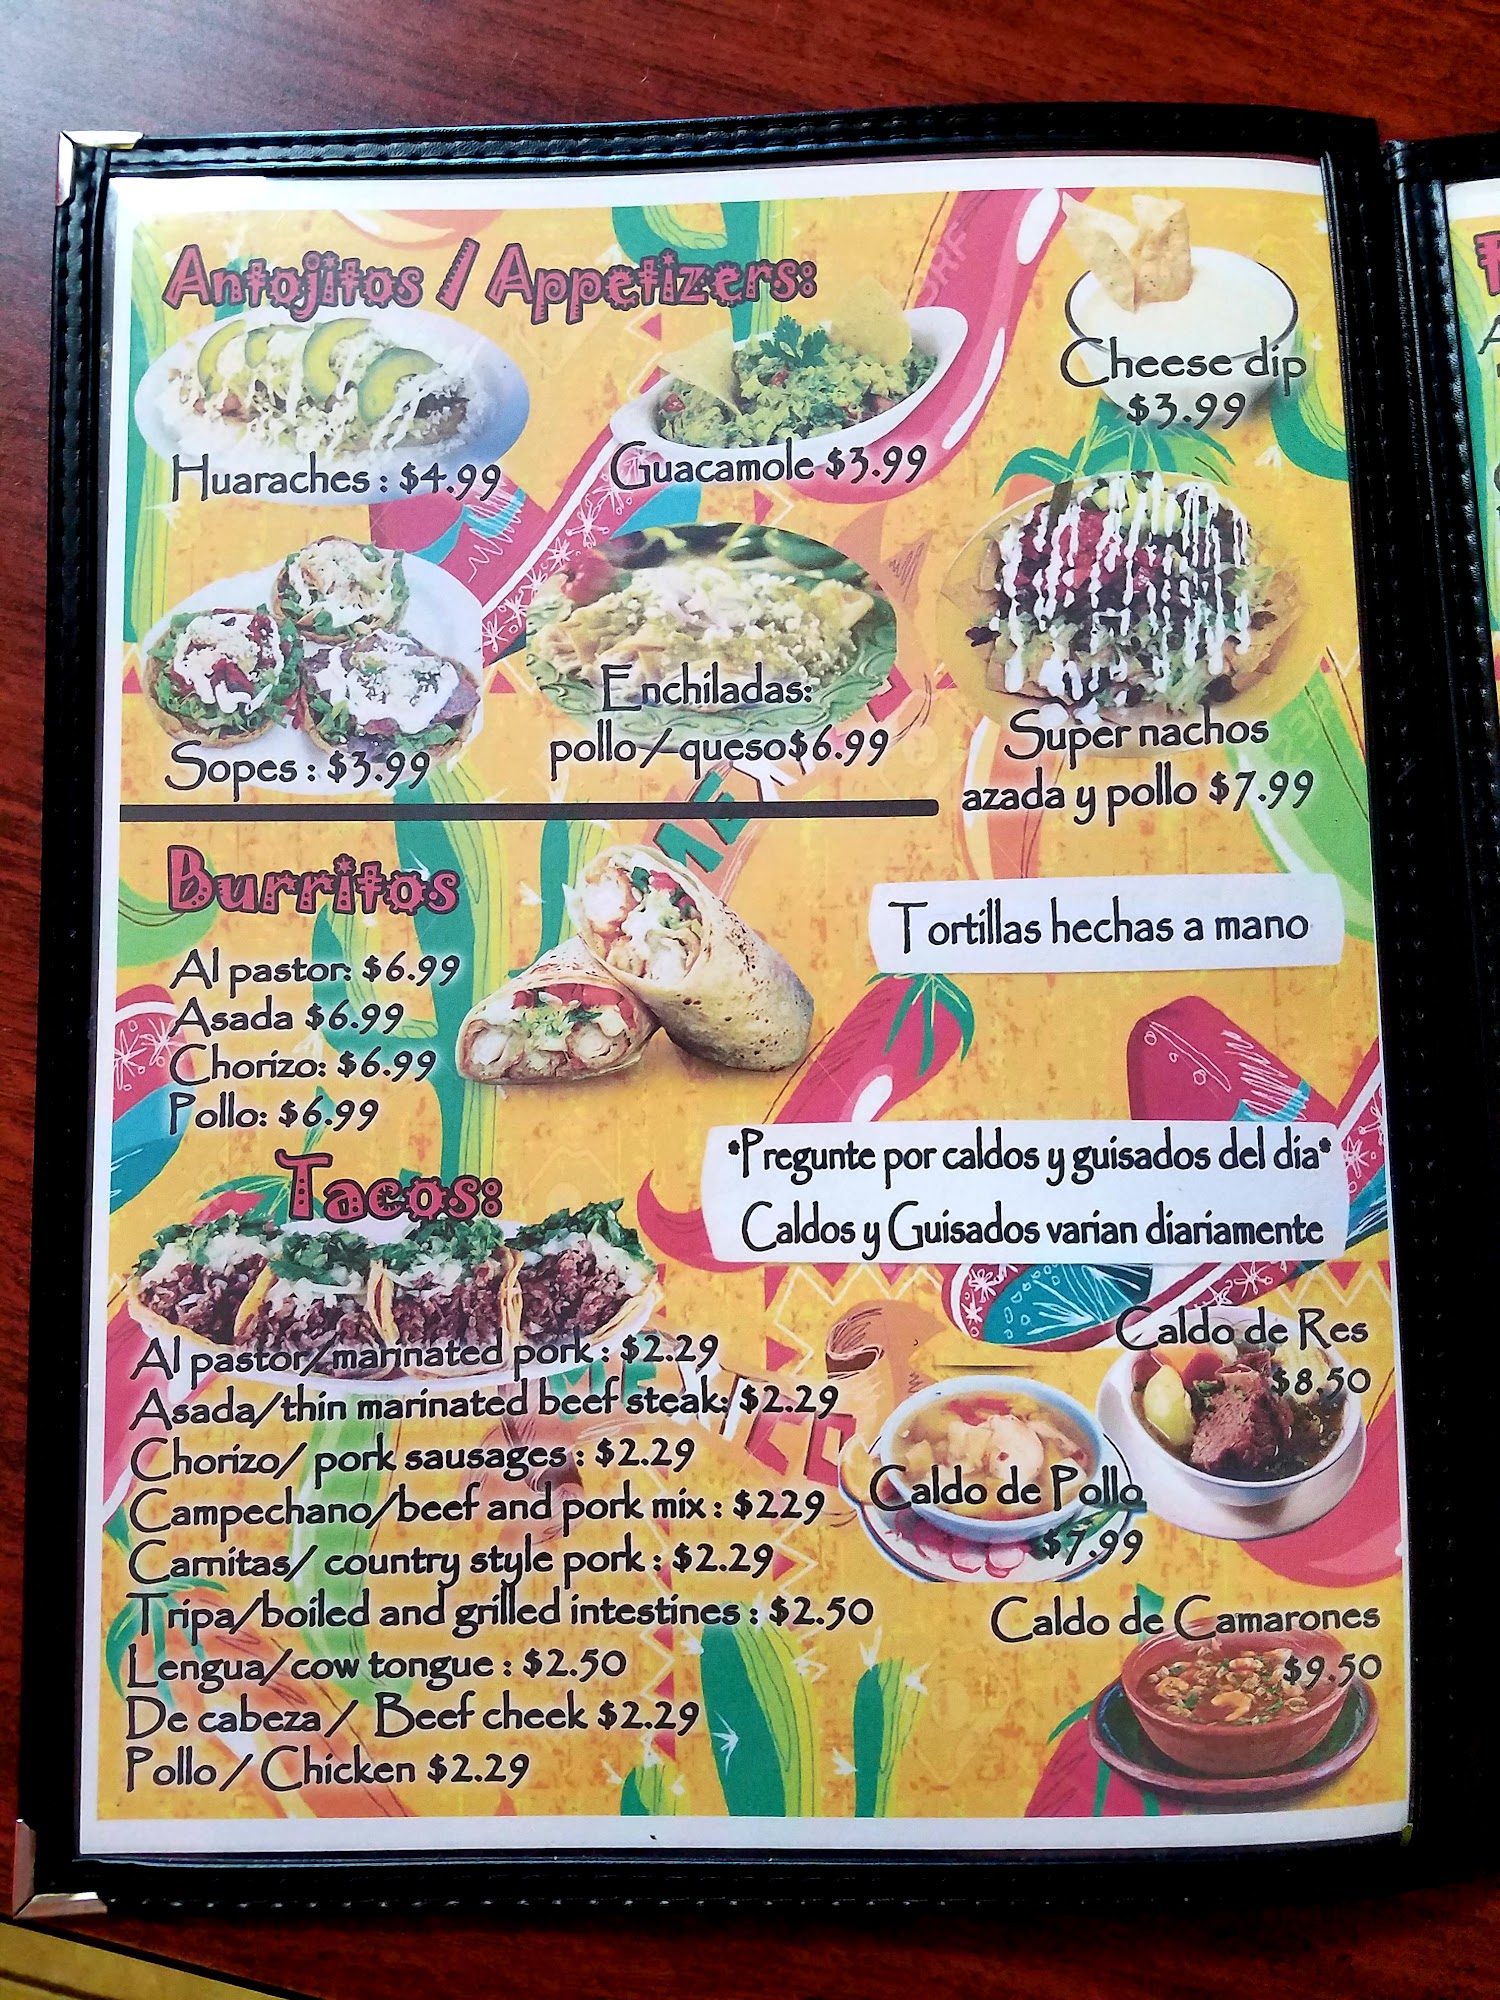 Antojitos / Appetizers:
Cheese dip
$3.99
Huaraches : $4.99
Guacamole $3.99
Sopes : $3.99
Enchiladas:
pollo / queso$6.99
Super nachos
azada y pollo $7.99
Burritos
Al pastor: $6.99
Asada $6.99
Chorizo: $6.99
Pollo: $6.99
Tortillas hechas a mano
*Pregunte por caldos y guisados del dia*
Caldos y Guisados varian diariamente
Tacos:
Al pastor/marinated pork : $2.29
Asada/thin marinated beef steak: $2.29
Chorizo/ pork sausages : $2.29
Campechano/beef and pork mix : $229
Carnitas/ country style pork : $2.29
Tripa/boiled and grilled intestines : $2.50
Lengua/cow tongue : $2.50
De cabeza / Beef cheek $2.29
Pollo / Chicken $2.29
Caldo de Res
$8.50
Caldo de Pollo
$7.99
Caldo de Camarones
$9.50